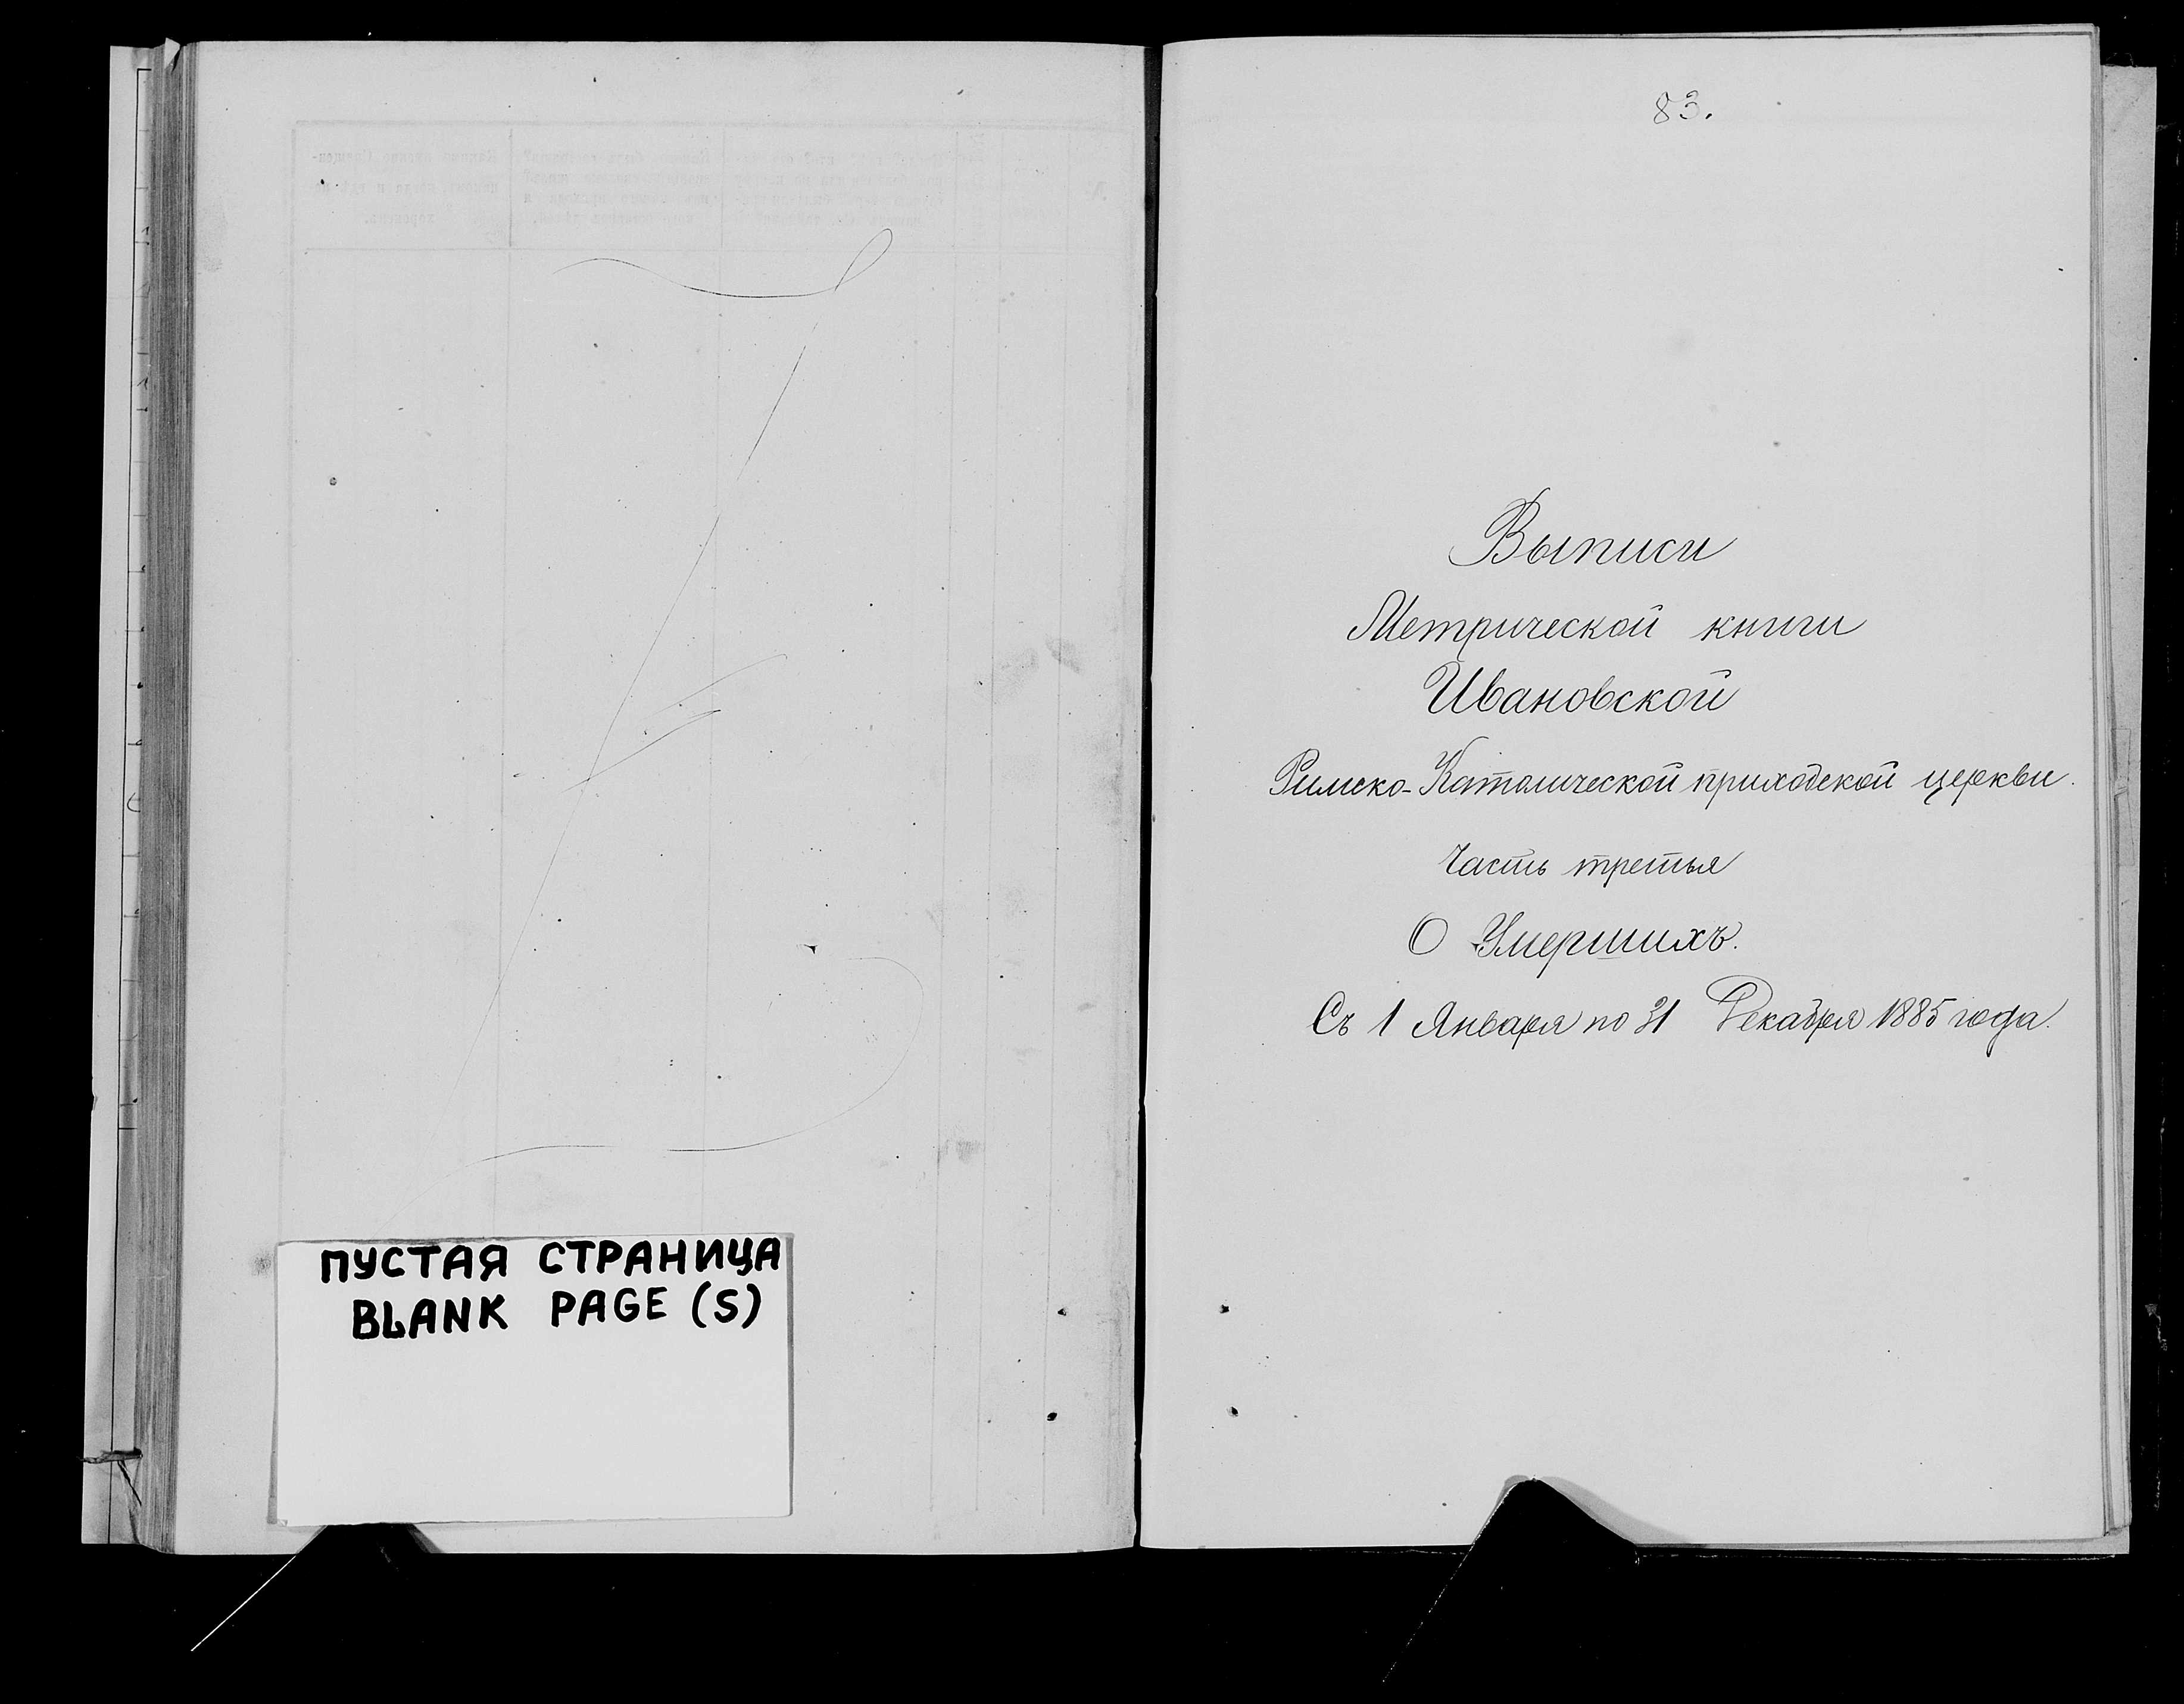 ПУСТАЯ СТРАНИЦА
BLANK PAGE (S)
83.
Выписи
Метрической книги
Ивановской
Римско-Католической приходской церкви.
Часть третья
О Умершихъ.
Съ 1 Января по 31 Декабря 1885 года.